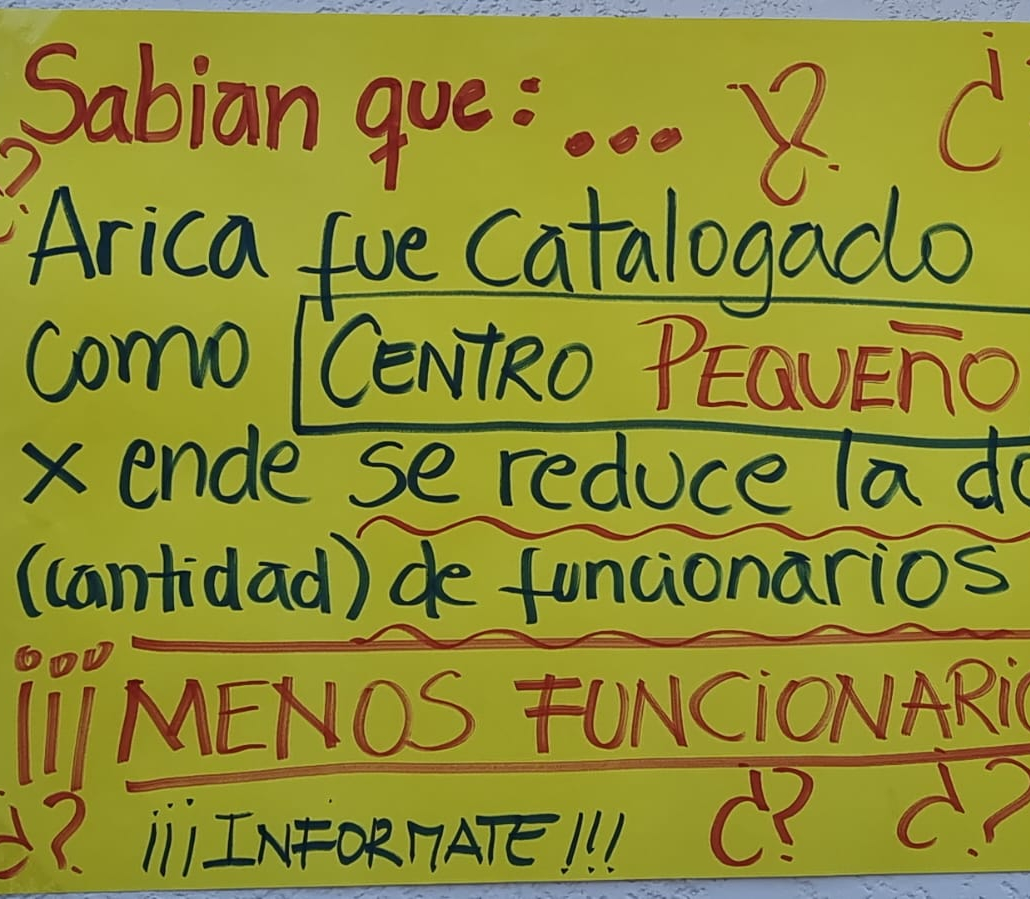 Sabian que: ... ¿? ¿
?
¿
Arica fue Catalogado
como CENTRO PEQUEÑO
x ende se reduce la
(cantidad) de funcionarios
¡¡¡ MENOS FUNCIONARIO
¿? ¡¡¡INFORMATE!!! ¿? ¿?